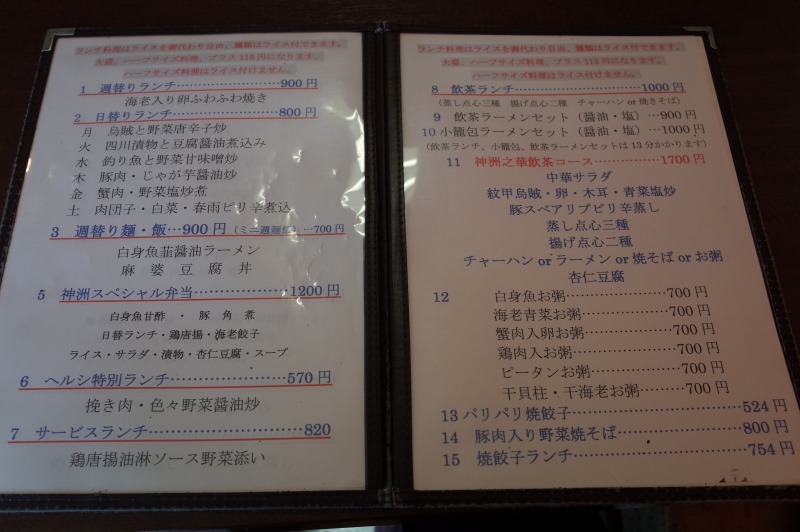 ランチ料理はライスを御代わり自由、麺類はライス付できます。
大盛、ハーフサイズ料理、プラス118円になります。
ハーフサイズ料理はライス付けません。
1 週替りランチ………………900円
海老入り卵ふわふわ焼き
2 日替りランチ………………800円
月 烏賊と野菜唐辛子炒
火 四川漬物と豆腐醤油煮込み
水 釣り魚と野菜甘味噌炒
木 豚肉・じゃが芋醤油炒
金 蟹肉・野菜塩炒煮
土 肉団子・白菜・春雨ピリ辛煮込
3 週替り麺・飯…900円(ミニ週麺飯)…700円
白身魚韮醤油ラーメン
麻婆豆腐丼
5 神洲スペシャル弁当……………1200円
白身魚甘酢・豚角煮
日替ランチ・鶏唐揚・海老餃子
ライス・サラダ・漬物・杏仁豆腐・スープ
6 ヘルシ特別ランチ………………570円
挽き肉・色々野菜醤油炒
7 サービスランチ…………………820
鶏唐揚油淋ソース野菜添い
ランチ料理はライスを御代わり自由、麺類はライス付できます。
大盛、ハーフサイズ料理、プラス118円になります。
ハーフサイズ料理はライス付けません。
8 飲茶ランチ…………………1000円
(蒸し点心三種 揚げ点心二種 チャーハン or 焼きそば)
9 飲茶ラーメンセット(醤油・塩)…900円
10 小籠包ラーメンセット(醤油・塩)…1000円
(飲茶ランチ、小籠包、飲茶ラーメンセットは13分かかります)
11 神洲之華飲茶コース……………1700円
中華サラダ
紋甲烏賊・卵・木耳・青菜塩炒
豚スペアリブピリ辛蒸し
蒸し点心三種
揚げ点心二種
チャーハン or ラーメン or 焼そば or お粥
杏仁豆腐
12 白身魚お粥………………700円
海老青菜お粥……………700円
蟹肉入卵お粥……………700円
鶏肉入お粥………………700円
ピータンお粥……………700円
干貝柱・干海老お粥………700円
13 パリパリ焼餃子………………………524円
14 豚肉入り野菜焼そば………………800円
15 焼餃子ランチ………………………754円